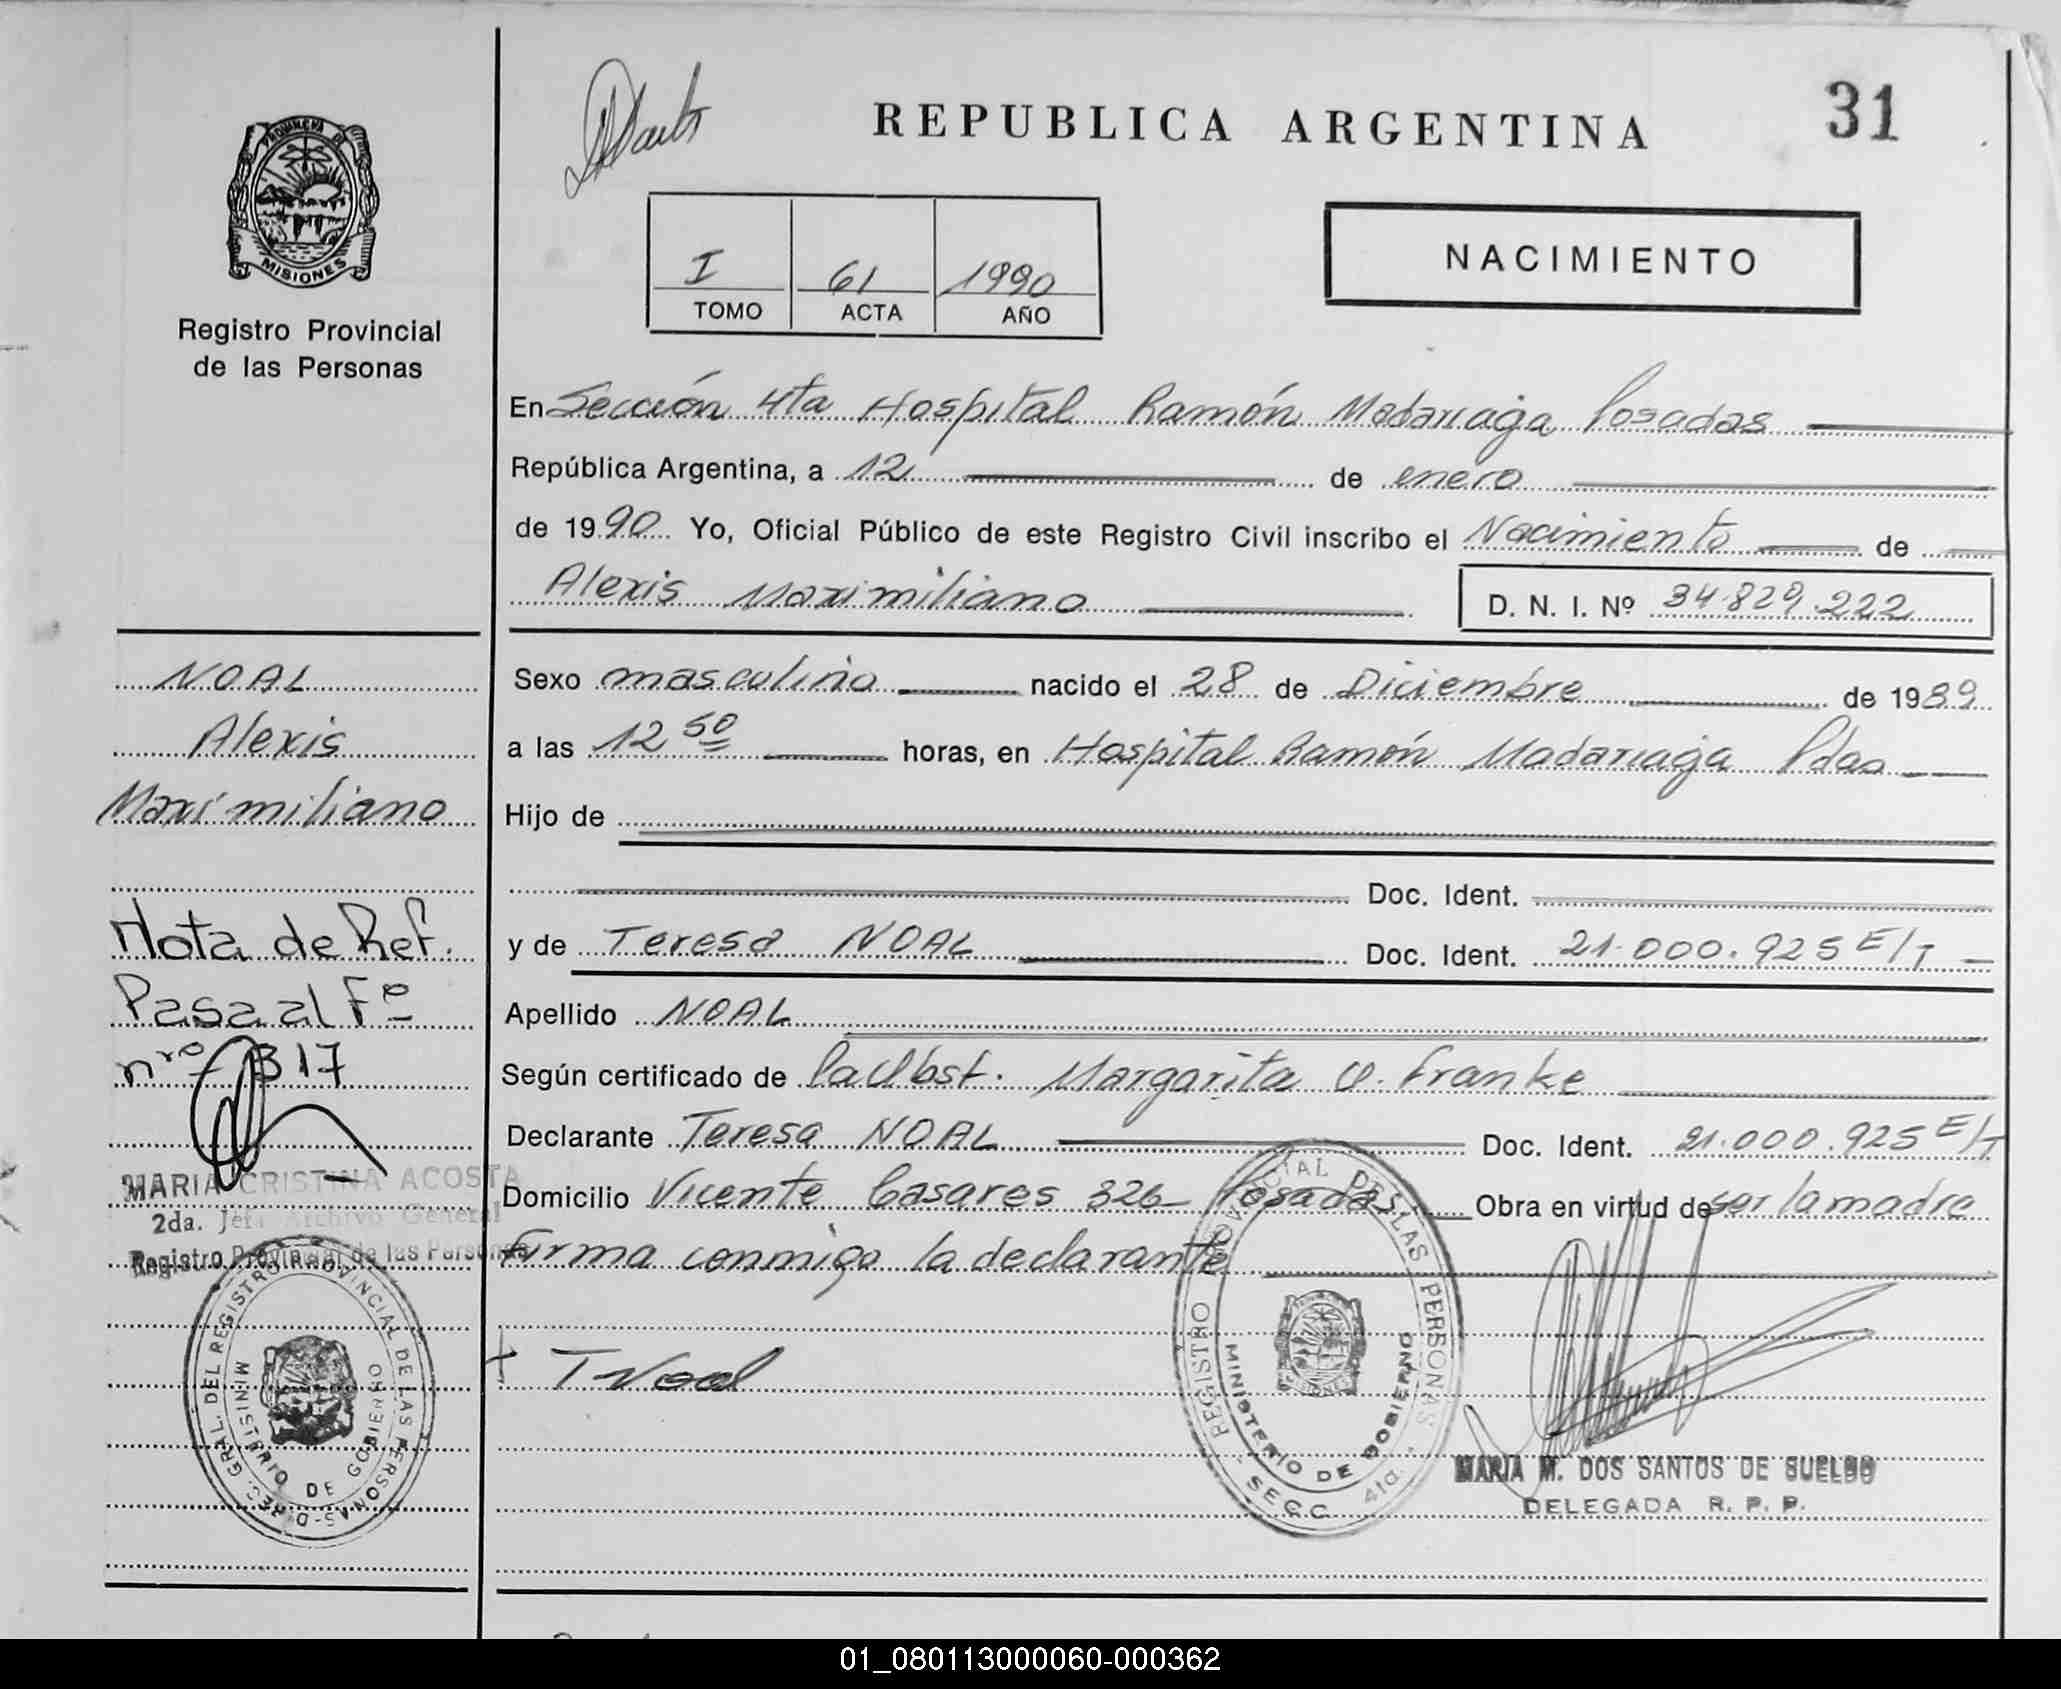 REPUBLICA ARGENTINA
31
PROVINCIA DE
MISIONES
Registro Provincial
de las Personas
I
61
1990
TOMO
ACTA
AÑO
NACIMIENTO
En Sección 4ta Hospital Ramón Madariaga Posadas
República Argentina, a 12 de enero
de 1990 Yo, Oficial Público de este Registro Civil inscribo el Nacimiento de
Alexis Maximiliano
D. N. I. Nº 34.829.222
NOAL
Alexis
Maximiliano
Nota de Ref.
Pasa al Fº
nro 317
MARIA CRISTINA ACOSTA
2da. Jefa Archivo General
Registro Provincial de las Personas
REG. GRAL. DEL REGISTRO PROVINCIAL DE LAS PERSONAS
MINISTERIO DE GOBIERNO
Sexo masculino nacido el 28 de Diciembre de 1989
a las 12 50 horas, en Hospital Ramón Madariaga Pdas
Hijo de
Doc. Ident.
y de Teresa NOAL Doc. Ident. 21.000.925 E/T
Apellido NOAL
Según certificado de la Obst. Margarita O. Franke
Declarante Teresa NOAL Doc. Ident. 21.000.925 E/T
Domicilio Vicente Casares 326 Posadas Obra en virtud de ser la madre
Firma conmigo la declarante
T Noal
REGISTRO PROVINCIAL DE LAS PERSONAS
MINISTERIO DE GOBIERNO
SECC. 4ta.
MARIA M. DOS SANTOS DE SUELDO
DELEGADA R. P. P.
01_080113000060-000362